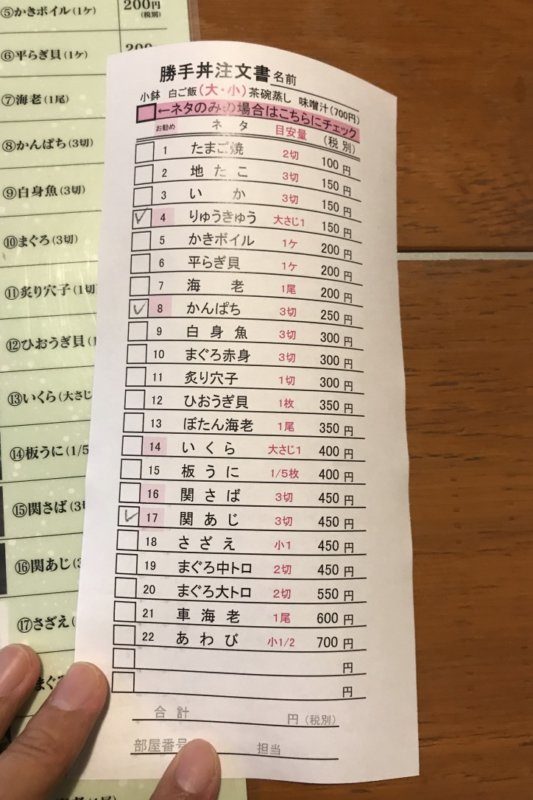 ⑤かきボイル(1ケ) 200円(税別)
⑥平らぎ貝(1ケ) 200
⑦海老(1尾)
⑧かんぱち(3切)
⑨白身魚(3切)
⑩まぐろ(3切)
⑪炙り穴子(1切)
⑫ひおうぎ貝(1
⑬いくら(大さじ
⑭板うに(1/5
⑮関さば(3
⑯関あじ(
⑰さざえ(
まぐ
勝手丼注文書 名前
小鉢 白ご飯(大・小)茶碗蒸し 味噌汁(700円)
←ネタのみの場合はこちらにチェック
お勧め ネタ 目安量 (税別)
1 たまご焼 2切 100円
2 地たこ 3切 150円
3 いか 3切 150円
✓ 4 りゅうきゅう 大さじ1 150円
5 かきボイル 1ケ 200円
6 平らぎ貝 1ケ 200円
7 海老 1尾 200円
✓ 8 かんぱち 3切 250円
9 白身魚 3切 300円
10 まぐろ赤身 3切 300円
11 炙り穴子 1切 300円
12 ひおうぎ貝 1枚 350円
13 ぼたん海老 1尾 350円
14 いくら 大さじ1 400円
15 板うに 1/5枚 400円
16 関さば 3切 450円
✓ 17 関あじ 3切 450円
18 さざえ 小1 450円
19 まぐろ中トロ 2切 450円
20 まぐろ大トロ 2切 550円
21 車海老 1尾 600円
22 あわび 小1/2 700円
円
円
合計 円(税別)
部屋番号 担当